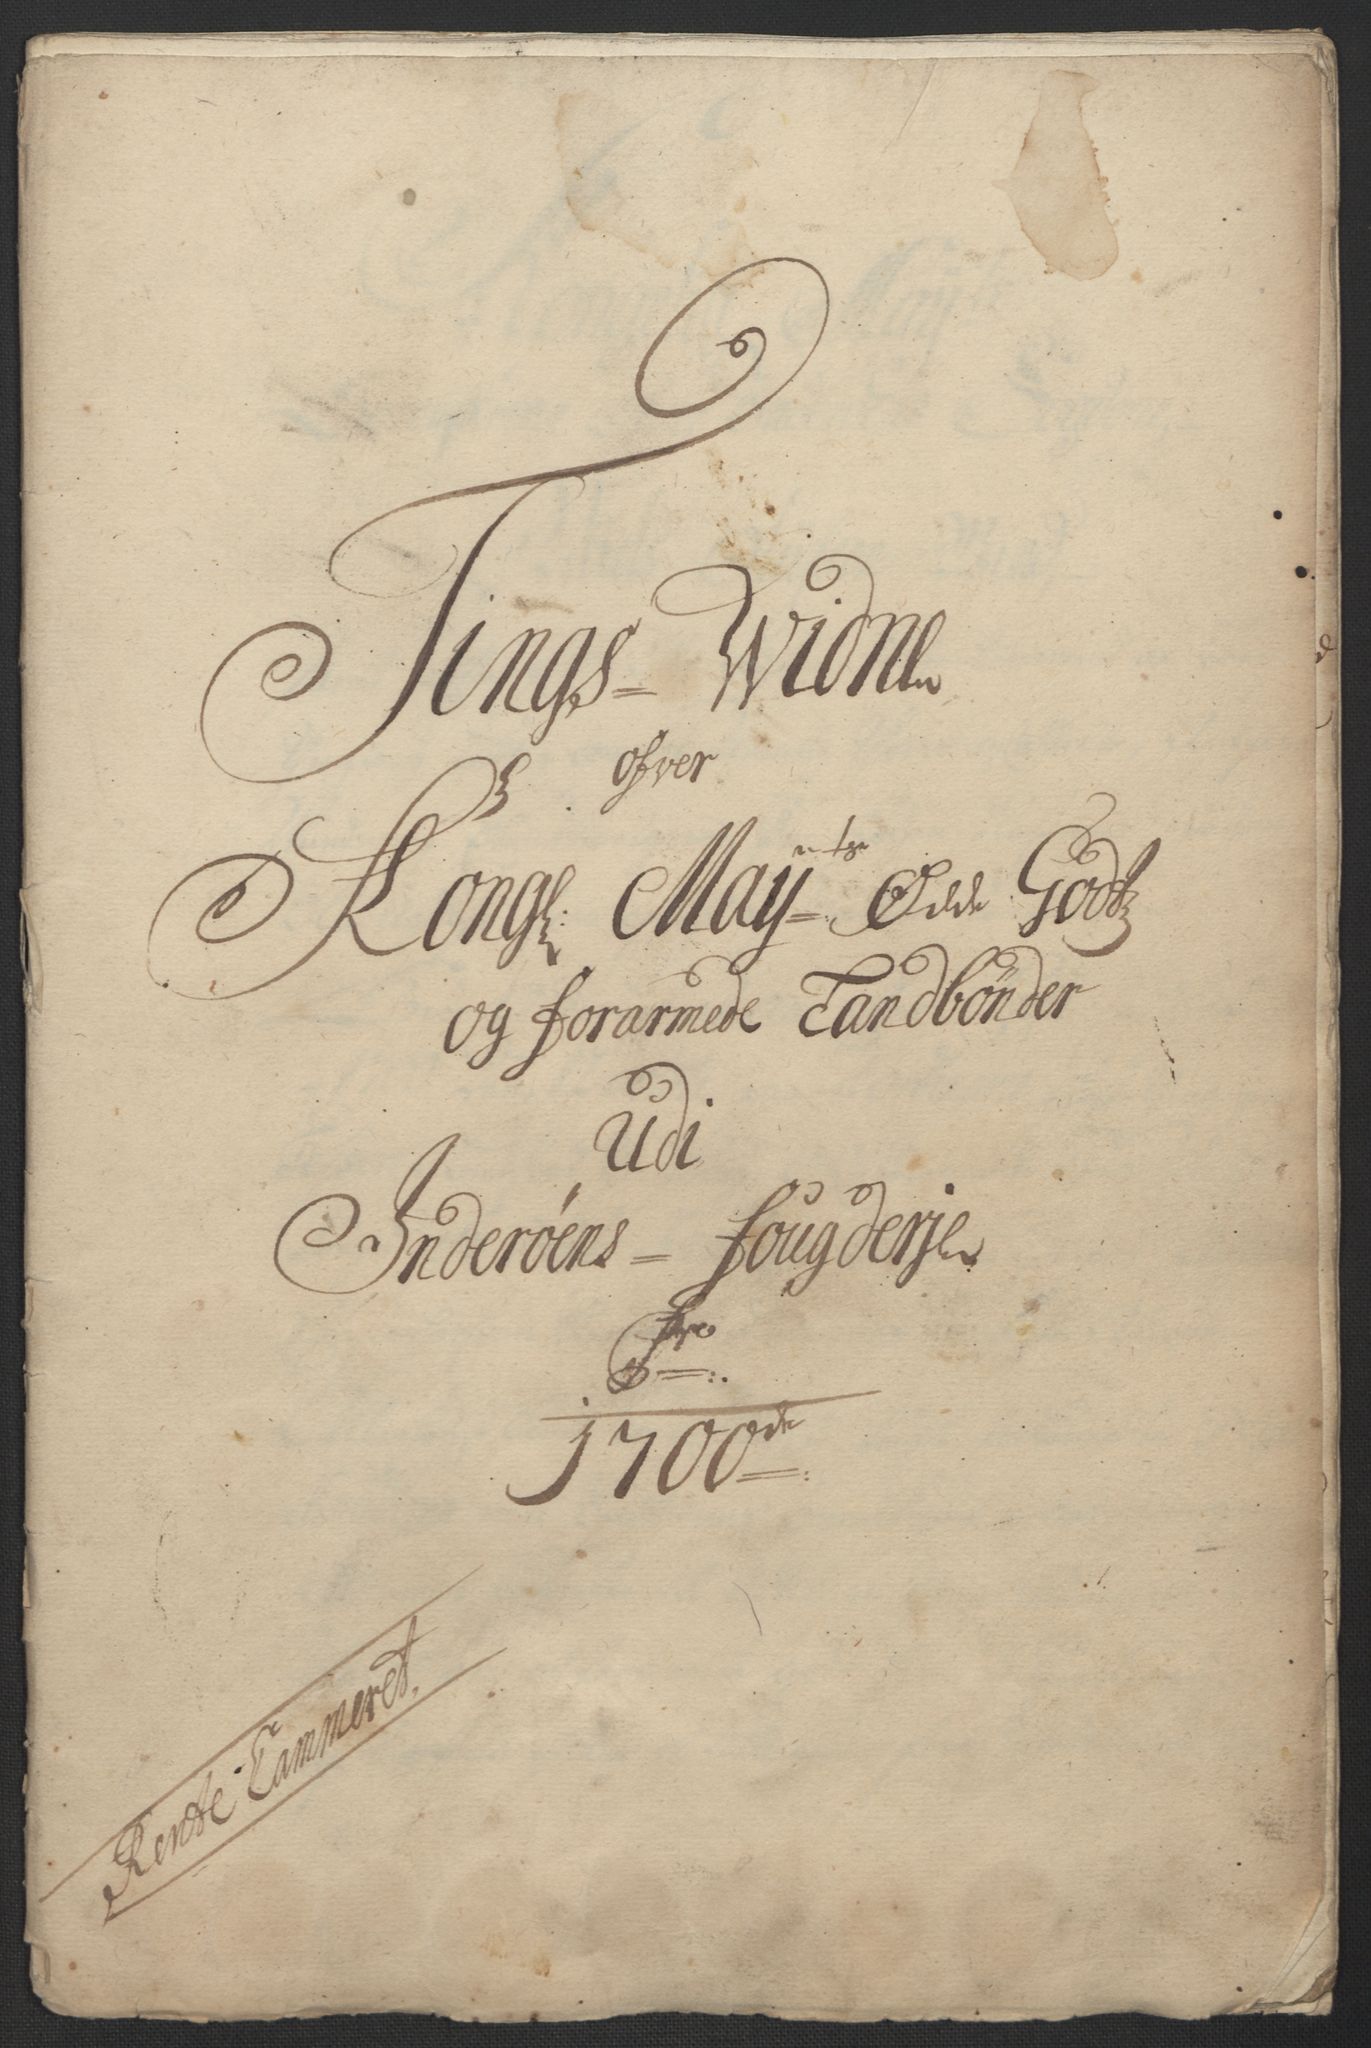 Tings- Widne
ofver
Kongl: Mayts Øde Godz
og forarmede Landbønder
Udi
Inderöens- fougderje
Pro
1700de
Rente Cammeret.